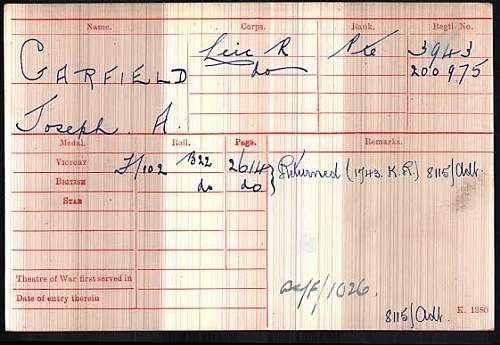 Name. Corps. Rank. Regtl. No.
GARFIELD Leic R Pte 3943
do 200975
Joseph. A.
Medal. Roll. Page. Remarks.
VICTORY F/102 B22 2614 } Returned (1743. K.R.) 8115/Adt.
BRITISH do do
STAR
Theatre of War first served in
Date of entry therein
/F/1026.
8115/Adt. K. 1380